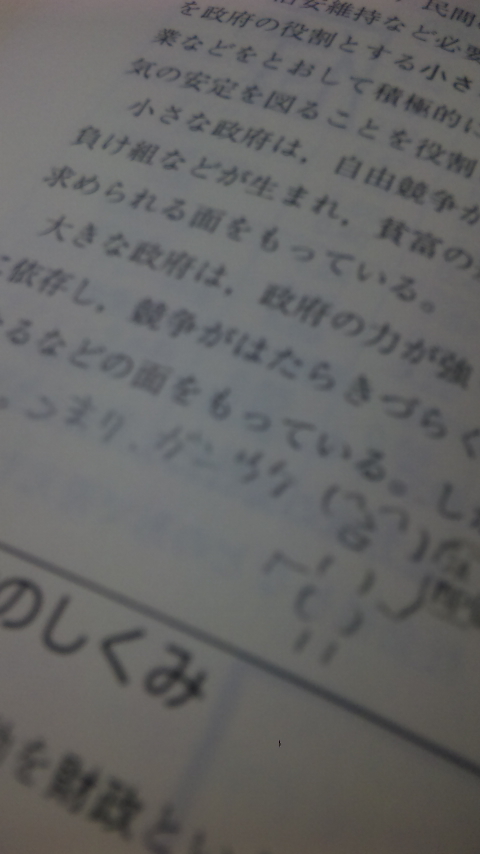 民間
治安維持など必要
を政府の役割とする小さ
業などをとおして積極的に
気の安定を図ることを役割
小さな政府は，自由競争が
負け組などが生まれ，貧富の
求められる面をもっている。
大きな政府は，政府の力が強
に依存し，競争がはたらきづらく
るなどの面をもっている。し
つまり、
のしくみ
を財政とい